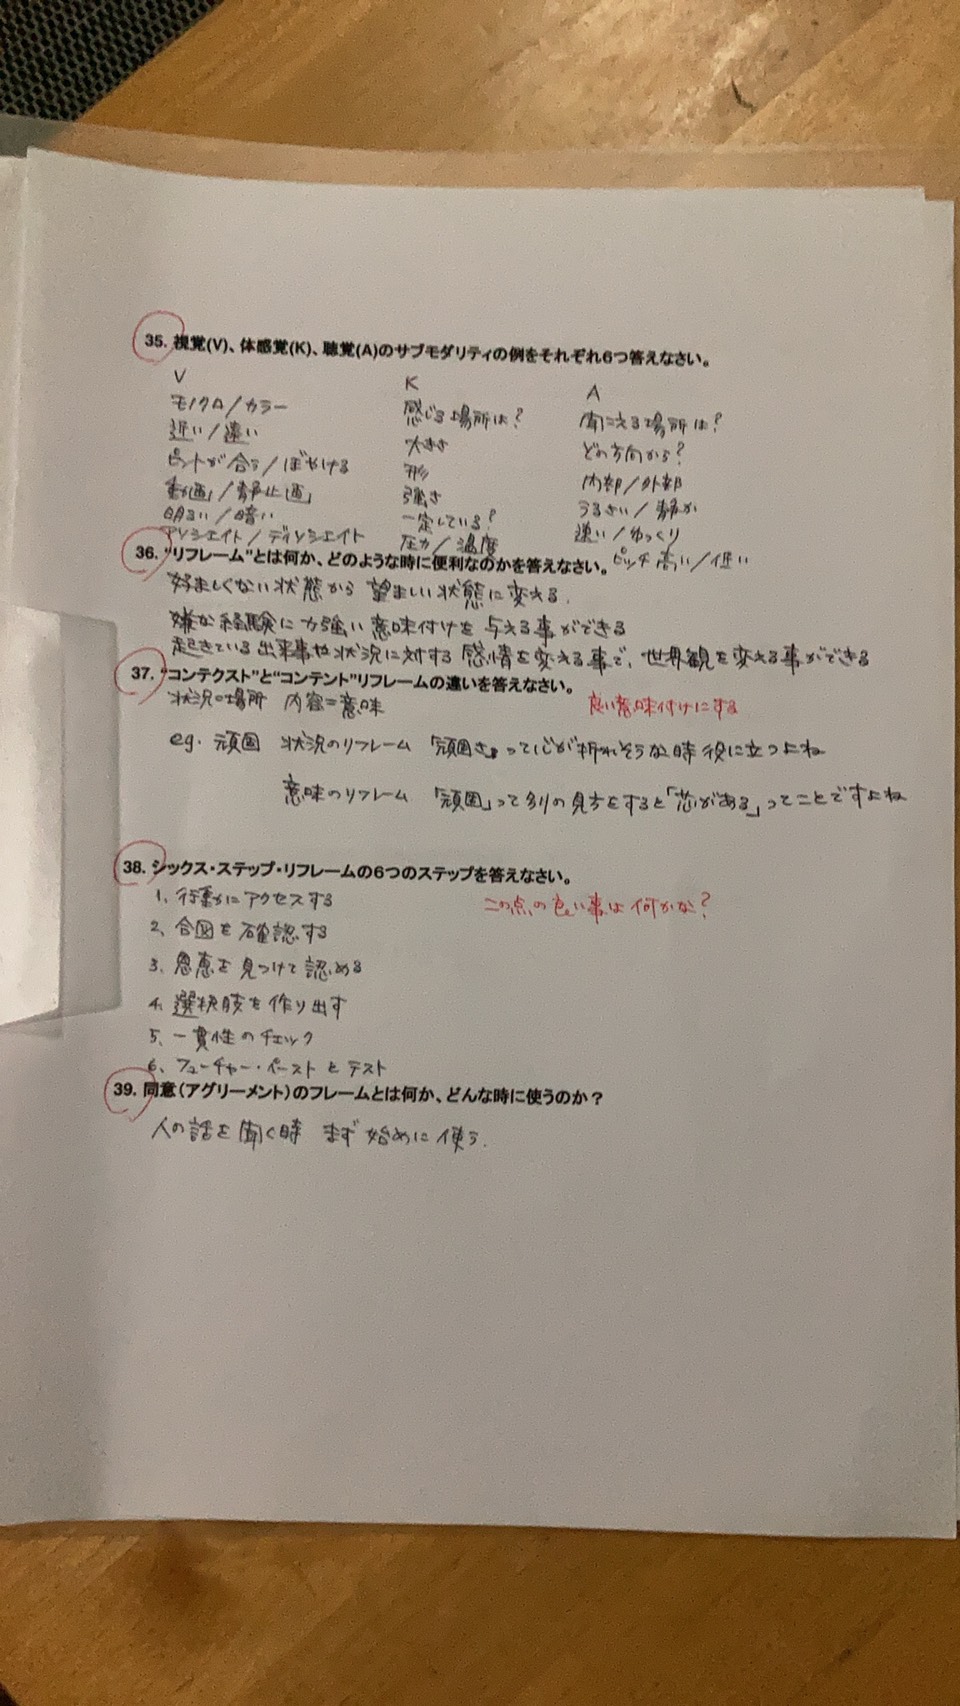 35. 視覚(V)、体感覚(K)、聴覚(A)のサブモダリティの例をそれぞれ6つ答えなさい。
V K A
モノクロ/カラー 感じる場所は? 聞こえる場所は?
近い/遠い 大きさ どの方向から?
ピントが合う/ぼやける 形 内部/外部
動画/静止画 強さ うるさい/静か
明るい/暗い 一定している? 速い/ゆっくり
アソシエイト/ディソシエイト 圧力/温度 ピッチ高い/低い
36. “リフレーム”とは何か、どのような時に便利なのかを答えなさい。
好ましくない状態から望ましい状態に変える.
嫌な経験に力強い意味付けを与える事ができる
起きている出来事や状況に対する感情を変える事で、世界観を変える事ができる
37. “コンテクスト”と“コンテント”リフレームの違いを答えなさい。
状況=場所 内容=意味 良い意味付けにする
eg. 頑固 状況のリフレーム 「頑固さ」って心が折れそうな時役に立つよね
意味のリフレーム 「頑固」って別の見方をすると「芯がある」ってことですよね
38. シックス・ステップ・リフレームの6つのステップを答えなさい。
1. 行動にアクセスする この点の良い事は何かな?
2. 合図を確認する
3. 恩恵を見つけて認める
4. 選択肢を作り出す
5. 一貫性のチェック
6. フューチャー・ペーストとテスト
39. 同意(アグリーメント)のフレームとは何か、どんな時に使うのか?
人の話を聞く時 まず始めに使う.